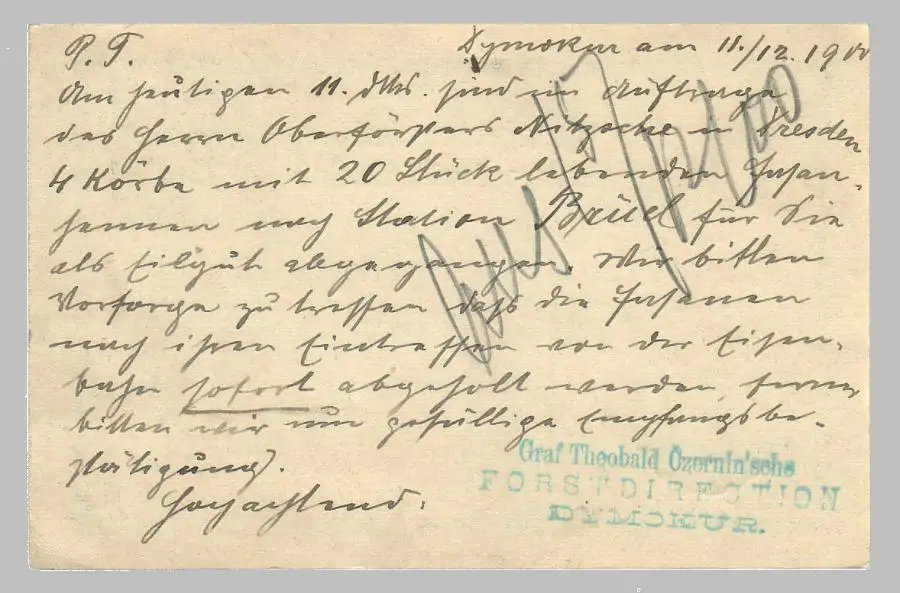 P. T. Dymokur am 11./12. 1900
Am heutigen 11. dMs. sind im Auftrage
des Herrn Oberförsters Nitzsche in Dresden
4 Körbe mit 20 Stück lebenden Fasan-
hennen nach Station Brüel für Sie
als Eilgut abgegangen. Wir bitten
Vorsorge zu treffen dass die Fasanen
nach ihrem Eintreffen von der Eisen-
bahn sofort abgeholt werden, ferner
bitten wir um gefällige Empfangsbe-
stätigung.
Hochachtend:
Graf Theobald Czernin'sche
FORSTDIRECTION
DYMOKUR.